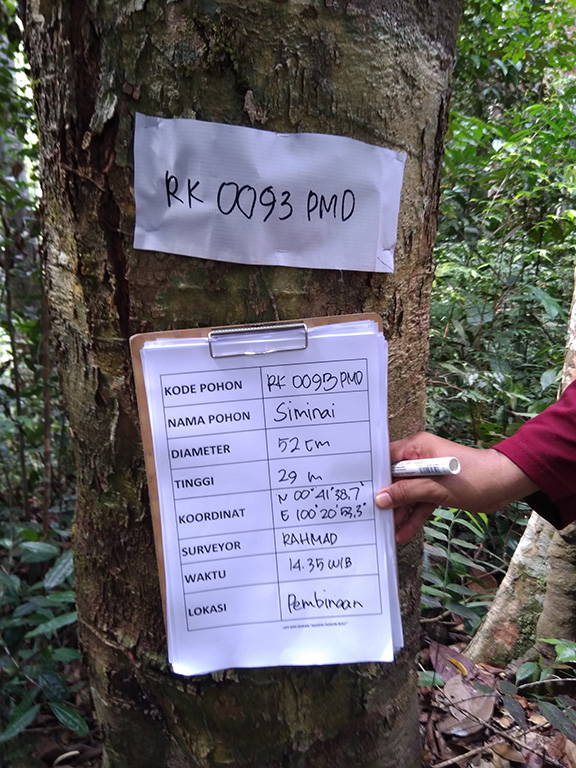 RK 0093 PMD
KODE POHON RK 0093 PMD
NAMA POHON Siminai
DIAMETER 52 cm
TINGGI 29 m
KOORDINAT N 00°41'38.7"
E 100°20'53.3"
SURVEYOR RAHMAD
WAKTU 14.35 WIB
LOKASI Pembinaan